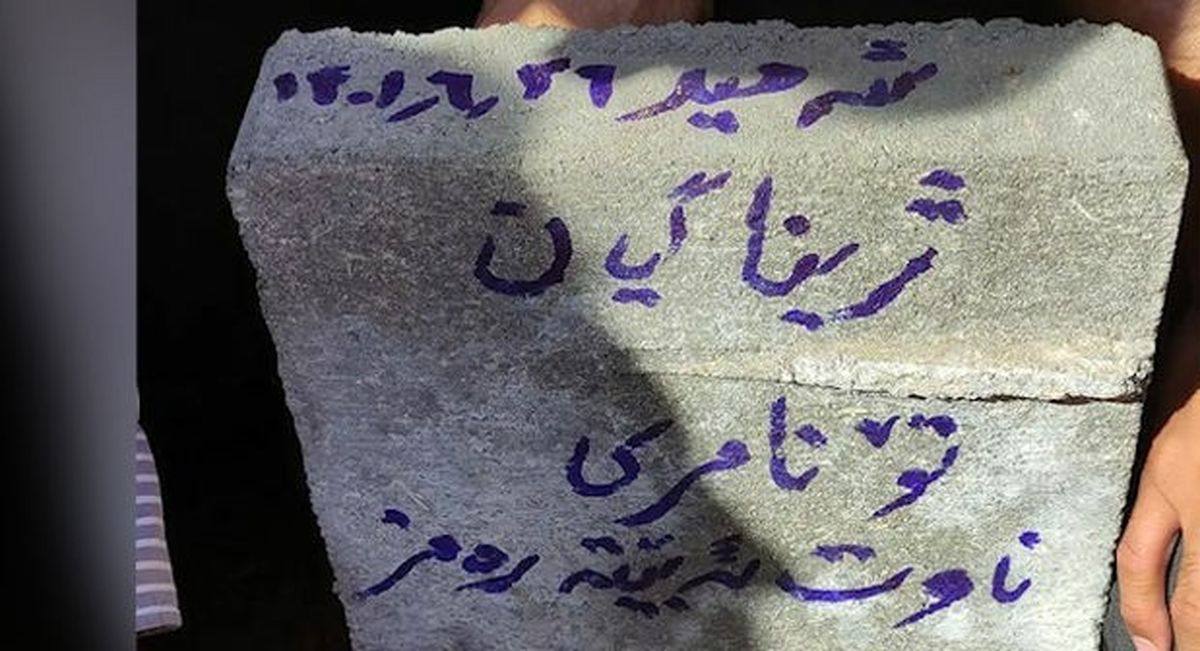 شەهید ۱۴۰۱/۶/۲۶
ژینا گیان
تۆ نامری
ناوت ئەبیتە رەمز